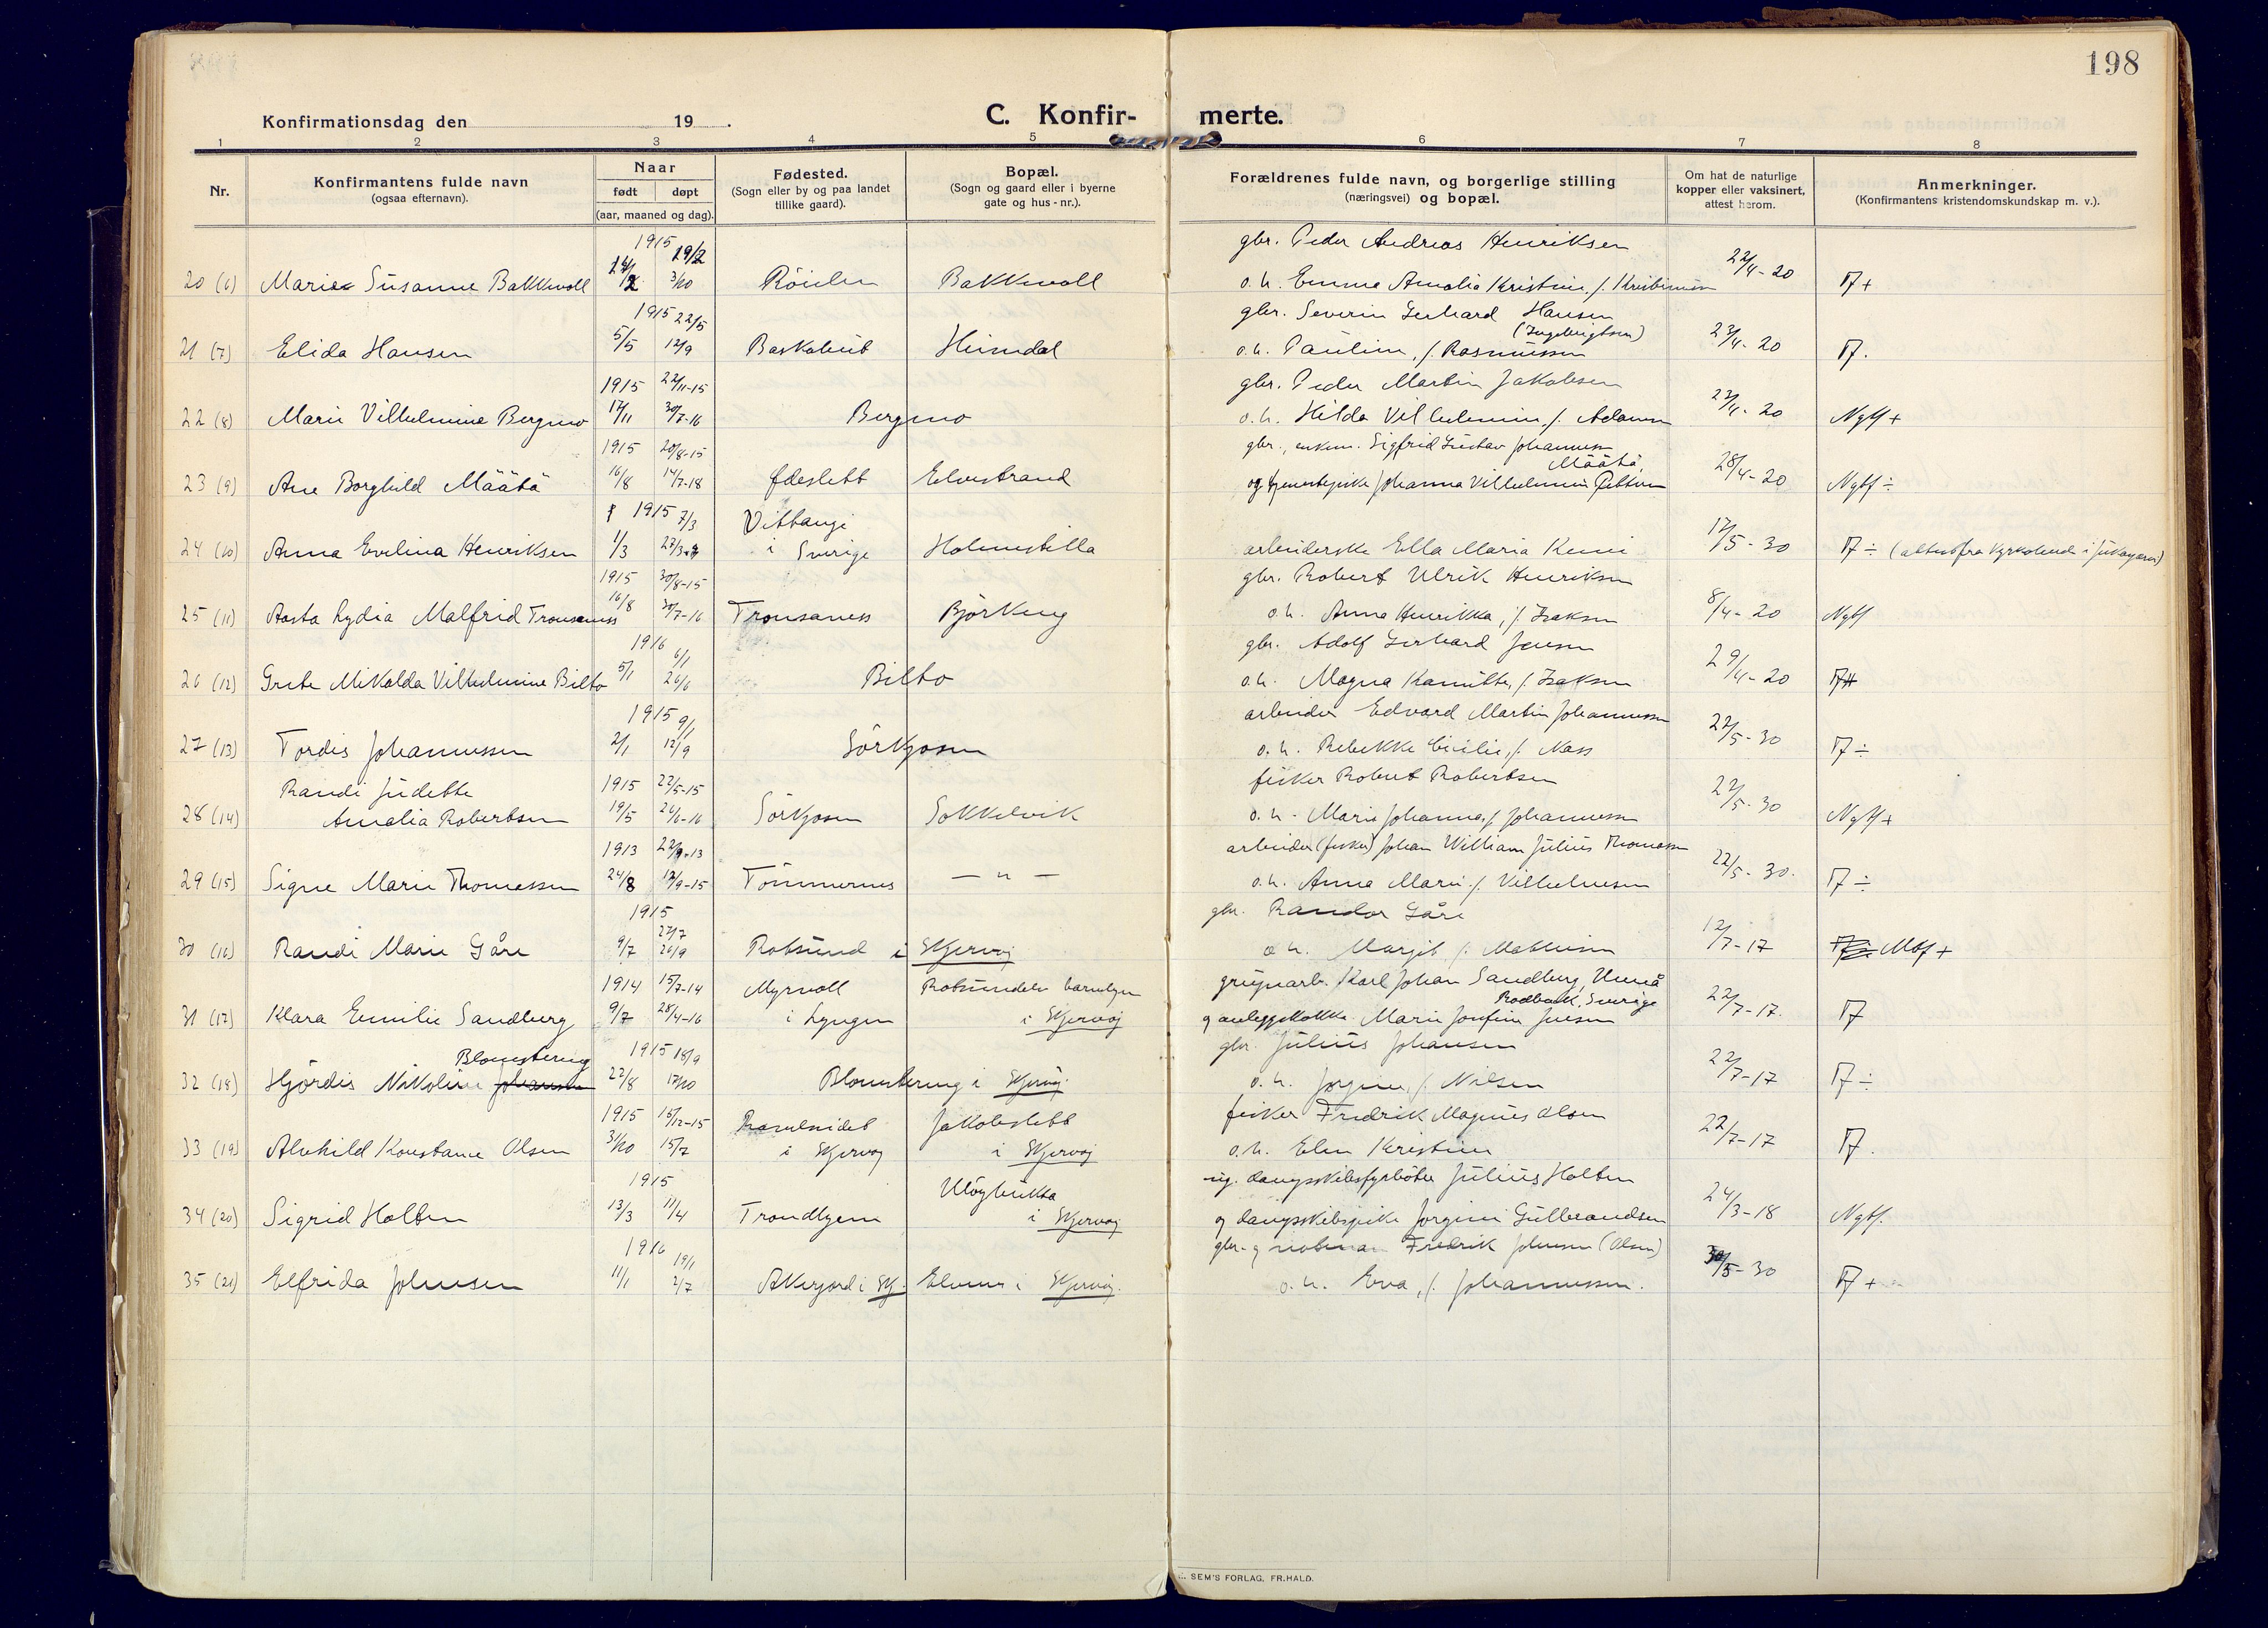 198
Konfirmationsdag den 19 . C. Konfir- merte.
1 2 3 4 5 6 7 8
Nr. Konfirmantens fulde navn (ogsaa efternavn). Naar født døpt (aar, maaned og dag). Fødested. (Sogn eller by og paa landet tillike gaard). Bopæl. (Sogn og gaard eller i byerne gate og hus-nr.). Forældrenes fulde navn, og borgerlige stilling (næringsvei) og bopæl. Om hat de naturlige kopper eller vaksinert, attest herom. Anmerkninger. (Konfirmantens kristendomskundskap m. v.).
1915 29/2 gbr. Peder Andreas Henriksen
20 (6) Marie Susanne Bakkvoll 3/10 Röielen Bakkvoll o. h. Emma Amalia Kristine, f. 22/4-20
1915 22/5 gbr. Severin Gerhard Hansen (Ingebrigtsen)
21 (7) Elida Hansen 5/5 12/9 Baskabut Heimdal o. h. Pauline, f. Rasmussen 23/4-20
1915 22/11-15 gbr. Peder Martin Jakobsen
22 (8) Marie Vilhelmine Bergmo 17/11 30/7-16 Bergmo o. h. Hilda Vilhelmine, f. 23/4-20 Ngtf +
1915 20/8-15 gbr., enkem. Sigfrid Gustav Johannessen Määtä,
23 (9) Ane Borghild Määtä 16/8 14/7-18 Ødeslett Elvestrand og tjenestepike Johanna Vilhelmine 28/4-20 Ngtf ÷
1915 7/3 Vittangi
24 (10) Anna Evelina Henriksen 1/3 27/3 i Sverige Holmestilla arbeiderske Ella Maria Kemi 17/5-30 ÷ (attest fra Kyrkoherde i Jukasjarvi)
1915 30/8-15 gbr. Robert Ulrik Henriksen
25 (11) Aasta Lydia Malfrid Tronsaness 16/8 30/7-16 Tronsaness Björkeng o. h. Anna Henrikka, f. Isaksen 8/4-20 Ngtf
1916 6/1 gbr. Adolf Gerhard Jensen
26 (12) Grete Mikalda Vilhelmine Bilto 5/1 26/6 Bilto o. h. Magna Kamilla, f. Isaksen 29/4-20
1915 9/1 arbeider Edvard Martin Johannessen
27 (13) Tordis Johannessen 2/1 12/9 Sörkjosen o. h. Rebekke Cicilie, f. Nass 22/5-30 ÷
Randi Judette 1915 22/5-15 fisker Robert Robertsen
28 (14) Amalia Robertsen 19/5 26/6-16 Sörkjosen Sokkelvik o. h. Marie Johanna, f. Johannessen 22/5-30 Ngtf +
1913 22/9-13 arbeider (fisker) Johan William Julius Thomassen
29 (15) Signe Marie Thomassen 24/8 12/9-15 Tömmernes — " — o. h. Anna Marie f. Vilhelmsen 22/5-30. ÷
1915 27/7 gbr. Randor Gåre
30 (16) Randi Marie Gåre 9/7 26/9 Rotsund i Skjervöj o. h. Margit f. Mathisen 12/7-17 Mtf +
1914 15/7-14 Myrvoll Rotsundelv barnehjem Karl Johan Sandberg, Umeå
31 (17) Klara Emilie Sandberg 9/7 28/4-16 i Lyngen i Skjervöj Rodbäck, Sverige og anleggskokke Marie Josefine Jensen 22/7-17.
Blomstereng 1915 18/9 gbr. Julius Johansen
32 (18) Hjördis Nikoline Johansen 22/8 17/10 Blomstereng i Skjervöj o. h. Jørgine, f. Nilsen 22/7-17 ÷
1915 15/12-15 Ravelseidet Jakobslett fisker Fredrik Magnus Olsen
33 (19) Alvhild Konstance Olsen 31/10 15/7 i Skjervöj i Skjervöj o. h. Elen Kristine 22/7-17
1915 Ulöybukta ug. dampskibsfyrböter Julius Holten
34 (20) Sigrid Holten 13/3 11/4 Trondhjem i Skjervöj og dampskibspike Jørgine Gulbrandsen 24/3-18 Ngtf.
1916 19/1 gbr. og notman Fredrik Johnsen (Olsen)
35 (21) Elfrida Johnsen 11/1 2/7 Akerjord i Skj. Elvenes i Skjervöj. o. h. Eva, f. Johannessen. 30/5-30 +
SEM'S FORLAG, FR.HALD.